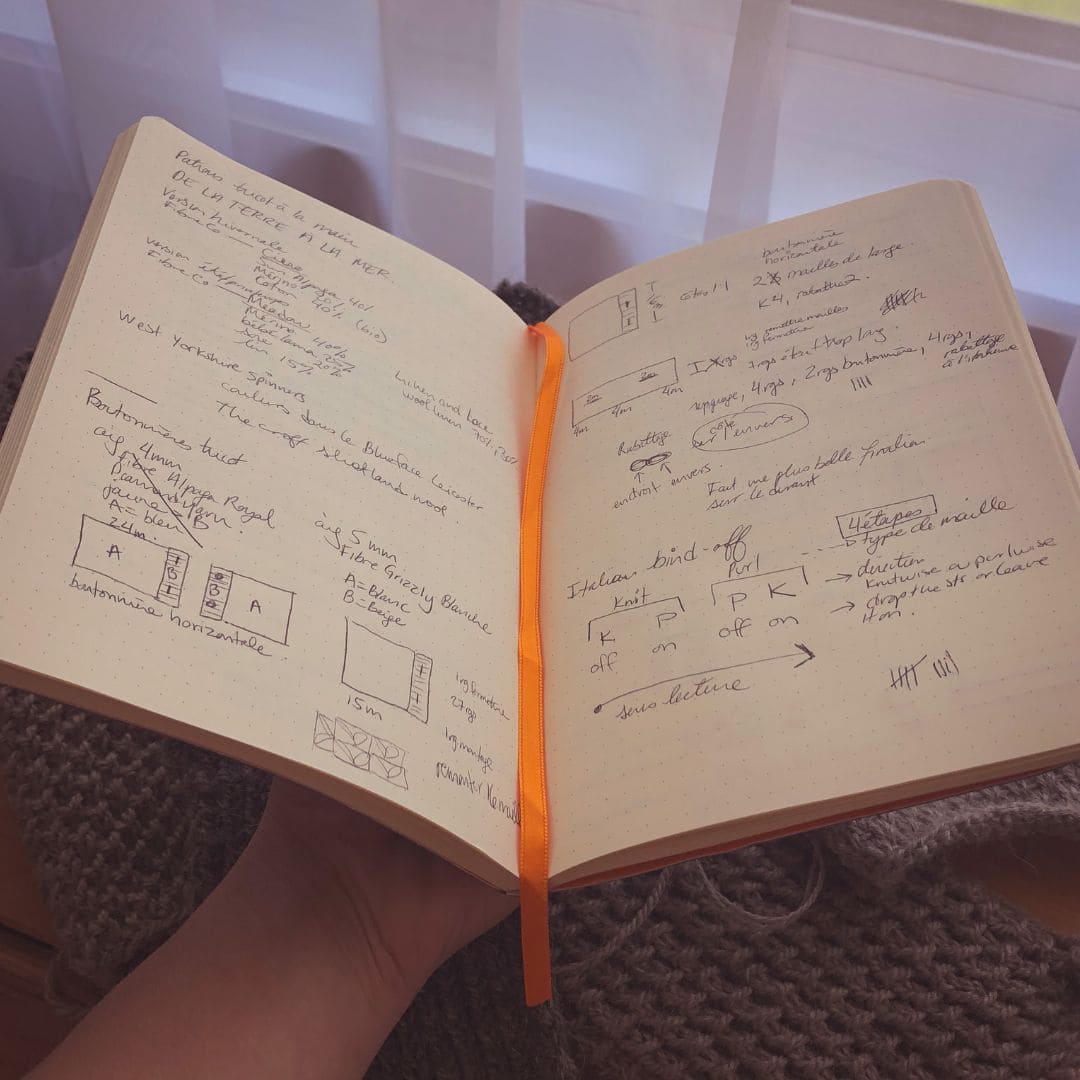 Patrons tricot à la main
DE LA TERRE À LA MER
Version hivernale
Fibre Co — Cirro
Alpaga 40%
Merino 20%
Coton 40% (bio)
version été/printemps
Fibre Co — Meadow
Merino 40%
bébé lama 25%
Soie 20%
lin 15%
West Yorkshire Spinners
couleurs dans le Blueface Leicester
The croft shetland wool.
Lichen and Lace
wool linen
Boutonnières tricot
aig 4mm
Fibre Alpaga Royal
Diamond Yarn
jaune = B
A = bleu
24m.
A
B
B
A
boutonnière horizontale
aig 5mm
Fibre Grizzly Blanche
A = Blanc
B = Beige
15m
1rg fermeture
27rgs
1rg montage
remonter
boutonnière
horizontale
2 mailles de large.
K4, rabattre 2.
rg remettre mailles
rg fermeture
7rgs était trop long.
4rgs, 2rgs boutonnière, 4rgs,
rabattage
à l'italienne
2m
2m
4m
4m
4m
Rabattage
endroit envers.
côté
sur l'envers
Fait une plus belle finition
sur le devant
Italian bind-off
Knit
Purl
K P
P K
off on
off on
sens lecture
4 étapes
type de maille
→ direction
knitwise ou purlwise
→ drop the sts or leave
it on.